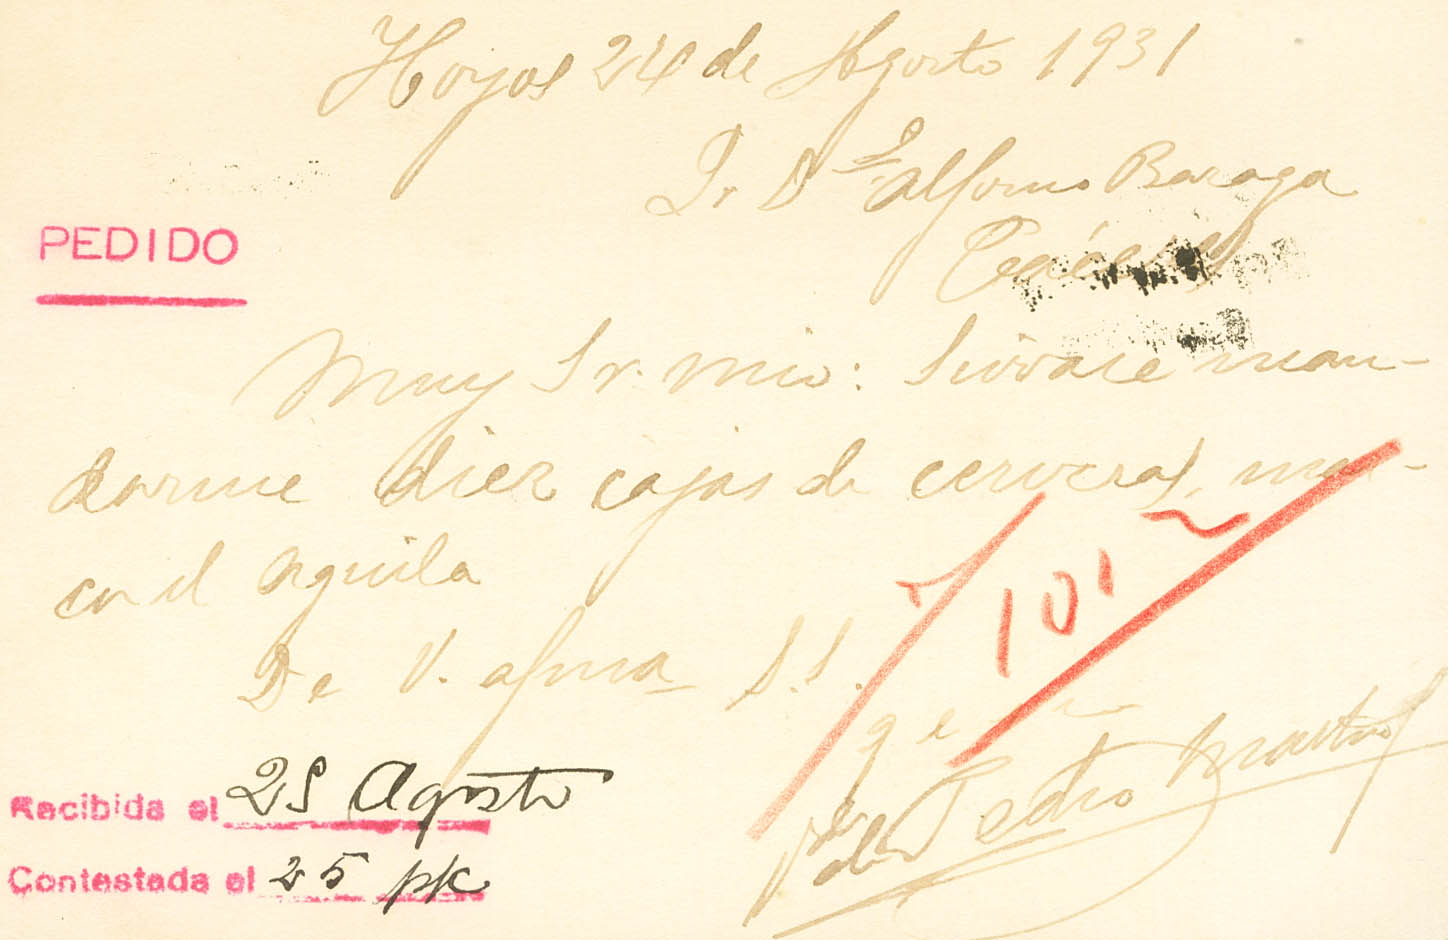 Hoyos 24 de Agosto 1931
Sr Dn Alfonso Baraga
Cáceres
PEDIDO
Muy Sr. mio: Sirvase man-
darme diez cajas de cervezas, mar-
ca el Aguila
De V. afma S.S.
101
q e
Pedro Martin
Recibida el 25 Agosto
Contestada el 25 pk